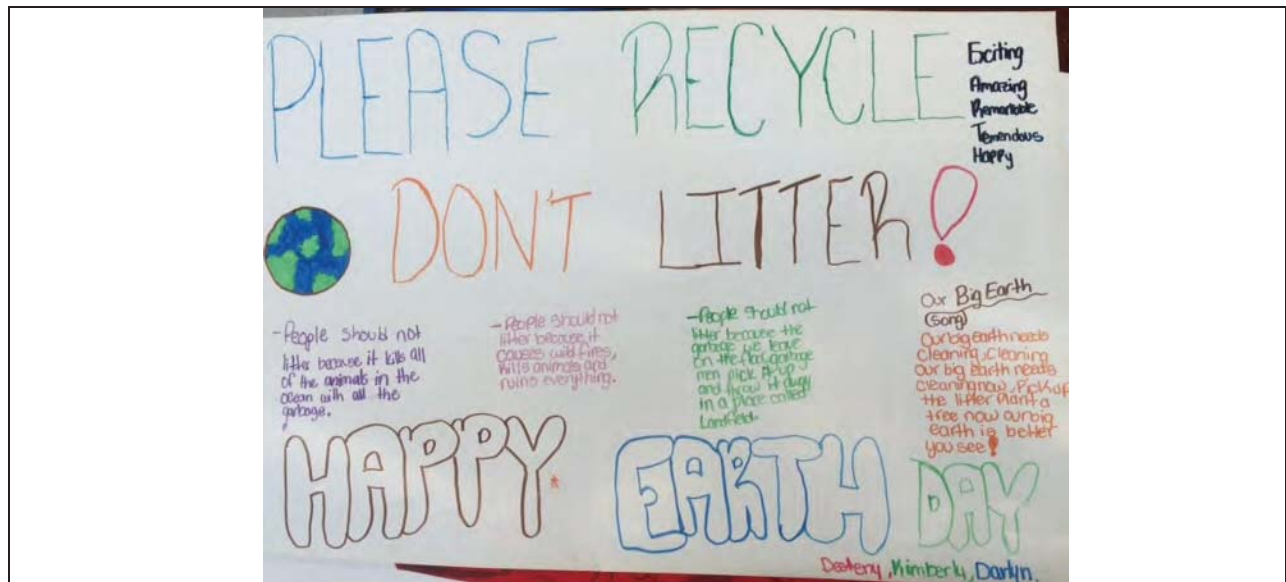 PLEASE RECYCLE
Exciting
Amazing
Remarkable
Temendous
Happy
DON'T LITTER!
-People should not
litter because it kills all
of the animals in the
ocean with all the
garbage.
-People should not
litter because it
causes wild fires,
kills animals and
ruins everything.
-People should not
litter because the
garbage we leave
on the floor, garbage
men pick it up
and throw it away
in a place called
Landfield.
Our Big Earth
(song)
Our big earth needs
cleaning, cleaning
our big earth needs
cleaning now, Pick up
the litter Plant a
tree now our big
earth is better
you see!
HAPPY EARTH DAY
Kimberly, Darlyn.